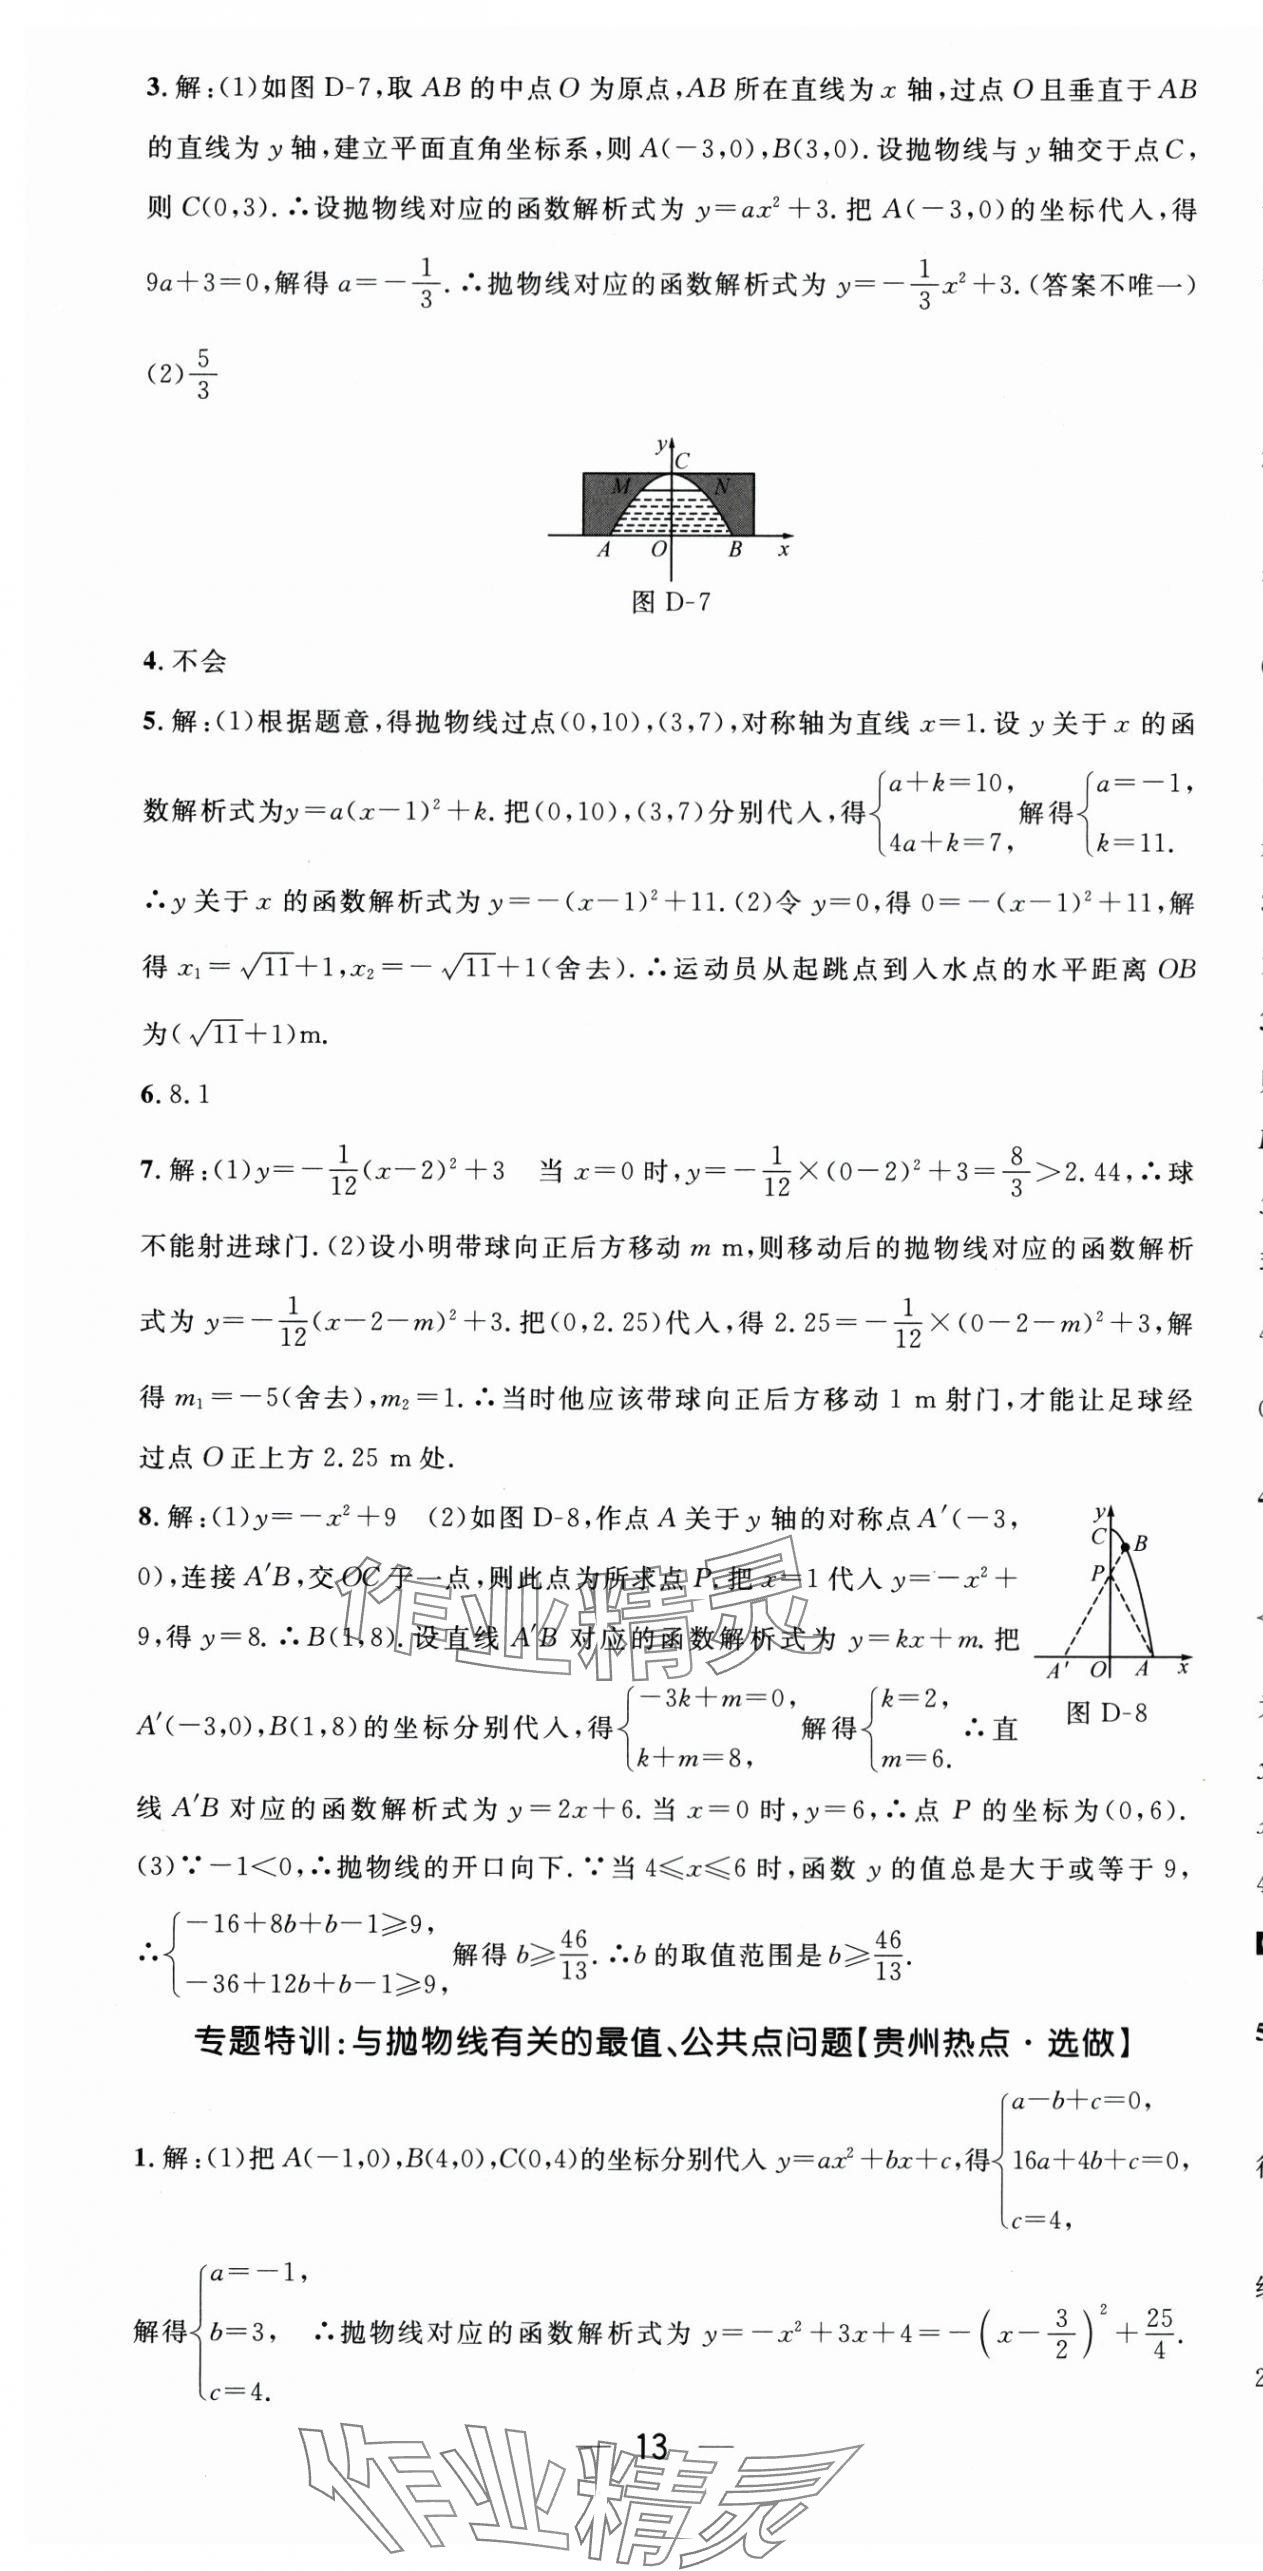 3.解:(1)如图 D-7,取 AB 的中点 O 为原点,AB 所在直线为 x 轴,过点 O 且垂直于 AB
的直线为 y 轴,建立平面直角坐标系,则 A(−3,0),B(3,0).设抛物线与 y 轴交于点 C,
则 C(0,3).∴设抛物线对应的函数解析式为 y=ax²+3.把 A(−3,0)的坐标代入,得
9a+3=0,解得 a=−1/3.∴抛物线对应的函数解析式为 y=−1/3x²+3.(答案不唯一)
(2)5/3
y
C
M N
A O B x
图 D-7
4.不会
5.解:(1)根据题意,得抛物线过点(0,10),(3,7),对称轴为直线 x=1.设 y 关于 x 的函
数解析式为y=a(x−1)²+k.把(0,10),(3,7)分别代入,得{a+k=10, 4a+k=7, 解得{a=−1, k=11.
∴y 关于 x 的函数解析式为 y=−(x−1)²+11.(2)令 y=0,得 0=−(x−1)²+11,解
得 x₁=√11+1,x₂=−√11+1(舍去).∴运动员从起跳点到入水点的水平距离 OB
为(√11+1)m.
6.8.1
7.解:(1)y=−1/12(x−2)²+3 当 x=0 时,y=−1/12×(0−2)²+3=8/3>2.44,∴球
不能射进球门.(2)设小明带球向正后方移动 m m,则移动后的抛物线对应的函数解析
式为 y=−1/12(x−2−m)²+3.把(0,2.25)代入,得 2.25=−1/12×(0−2−m)²+3,解
得 m₁=−5(舍去),m₂=1.∴当时他应该带球向正后方移动 1 m 射门,才能让足球经
过点 O 正上方 2.25 m 处.
8.解:(1)y=−x²+9 (2)如图 D-8,作点 A 关于 y 轴的对称点 A′(−3,
0),连接 A′B,交 OC 于一点,则此点为所求点 P.把 x=1 代入 y=−x²+
9,得 y=8.∴B(1,8).设直线 A′B 对应的函数解析式为 y=kx+m.把
A′(−3,0),B(1,8)的坐标分别代入,得{−3k+m=0, k+m=8, 解得{k=2, m=6. ∴直
y
C B
P
A′ O A x
图 D-8
线 A′B 对应的函数解析式为 y=2x+6.当 x=0 时,y=6,∴点 P 的坐标为(0,6).
(3)∵−1<0,∴抛物线的开口向下.∵当 4≤x≤6 时,函数 y 的值总是大于或等于 9,
∴{−16+8b+b−1≥9, −36+12b+b−1≥9, 解得 b≥46/13.∴b 的取值范围是 b≥46/13.
专题特训:与抛物线有关的最值、公共点问题【贵州热点·选做】
1.解:(1)把 A(−1,0),B(4,0),C(0,4)的坐标分别代入 y=ax²+bx+c,得{a−b+c=0, 16a+4b+c=0, c=4,
解得{a=−1, b=3, c=4. ∴抛物线对应的函数解析式为 y=−x²+3x+4=−(x−3/2)²+25/4.
— 13 —
作业精灵
作业精灵